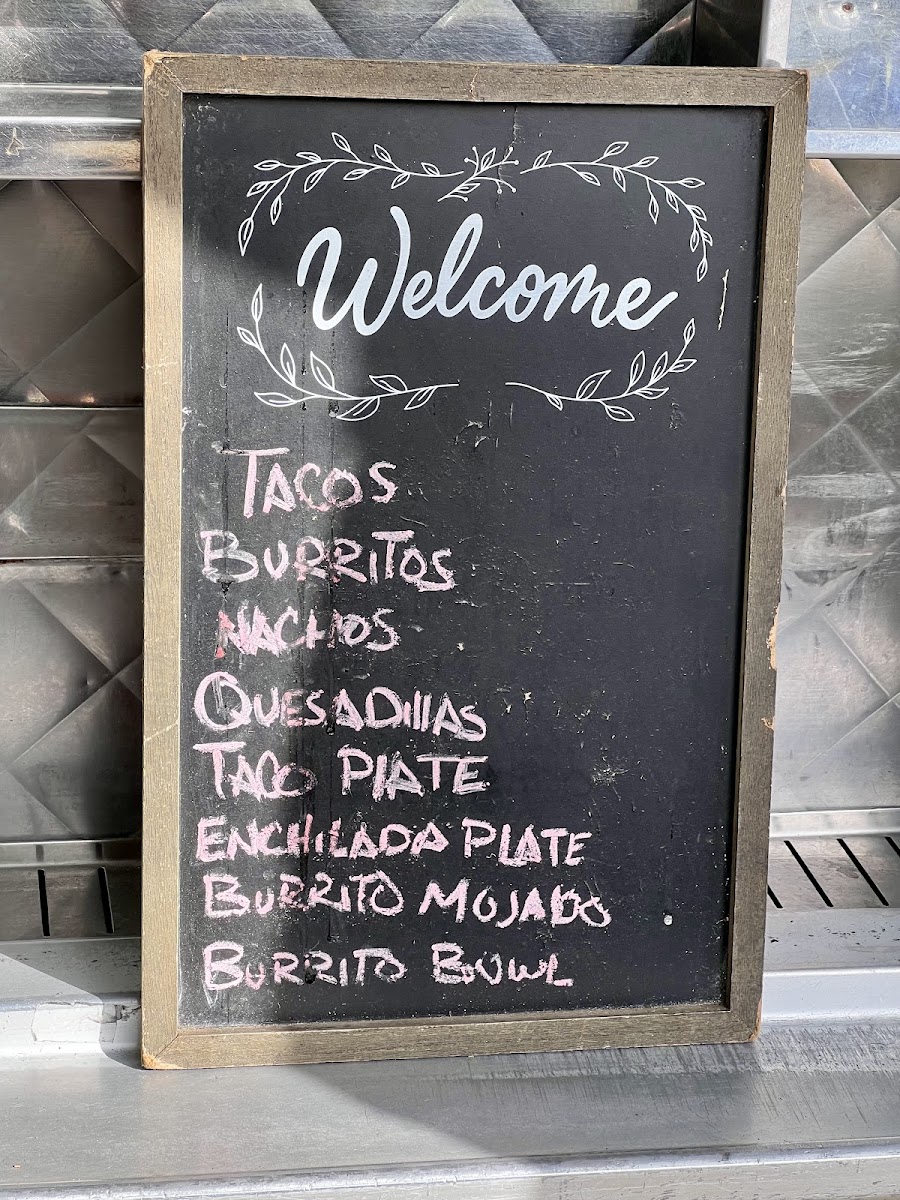 Welcome
TACOS
BURRITOS
NACHOS
QUESADIllAS
TACO PlATE
ENCHILADA PLATE
BURRITO MOJADO
BURRITO BOWL